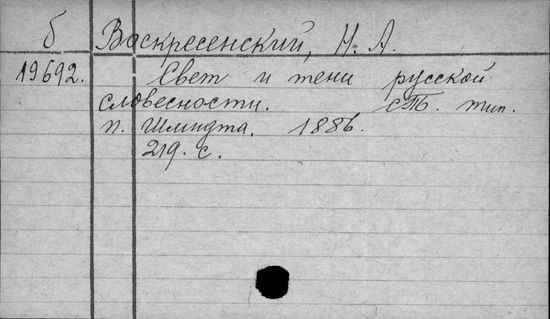 б Воскресенский, Н. А.
19692. Свет и тени русской
словесности. СПБ. тип.
п. Шмидта. 1886.
219. с.